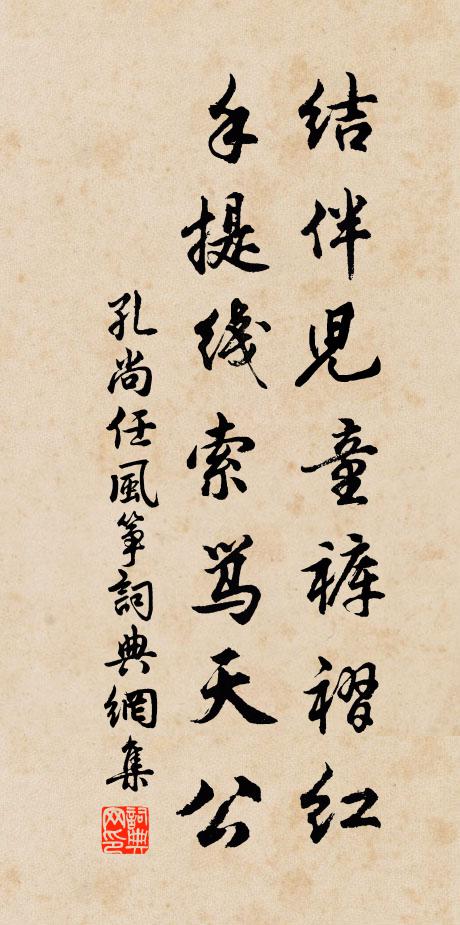 结伴児童裤褶红
手提线索骂天公
孔尚任風筝詞典網集
詞典网印